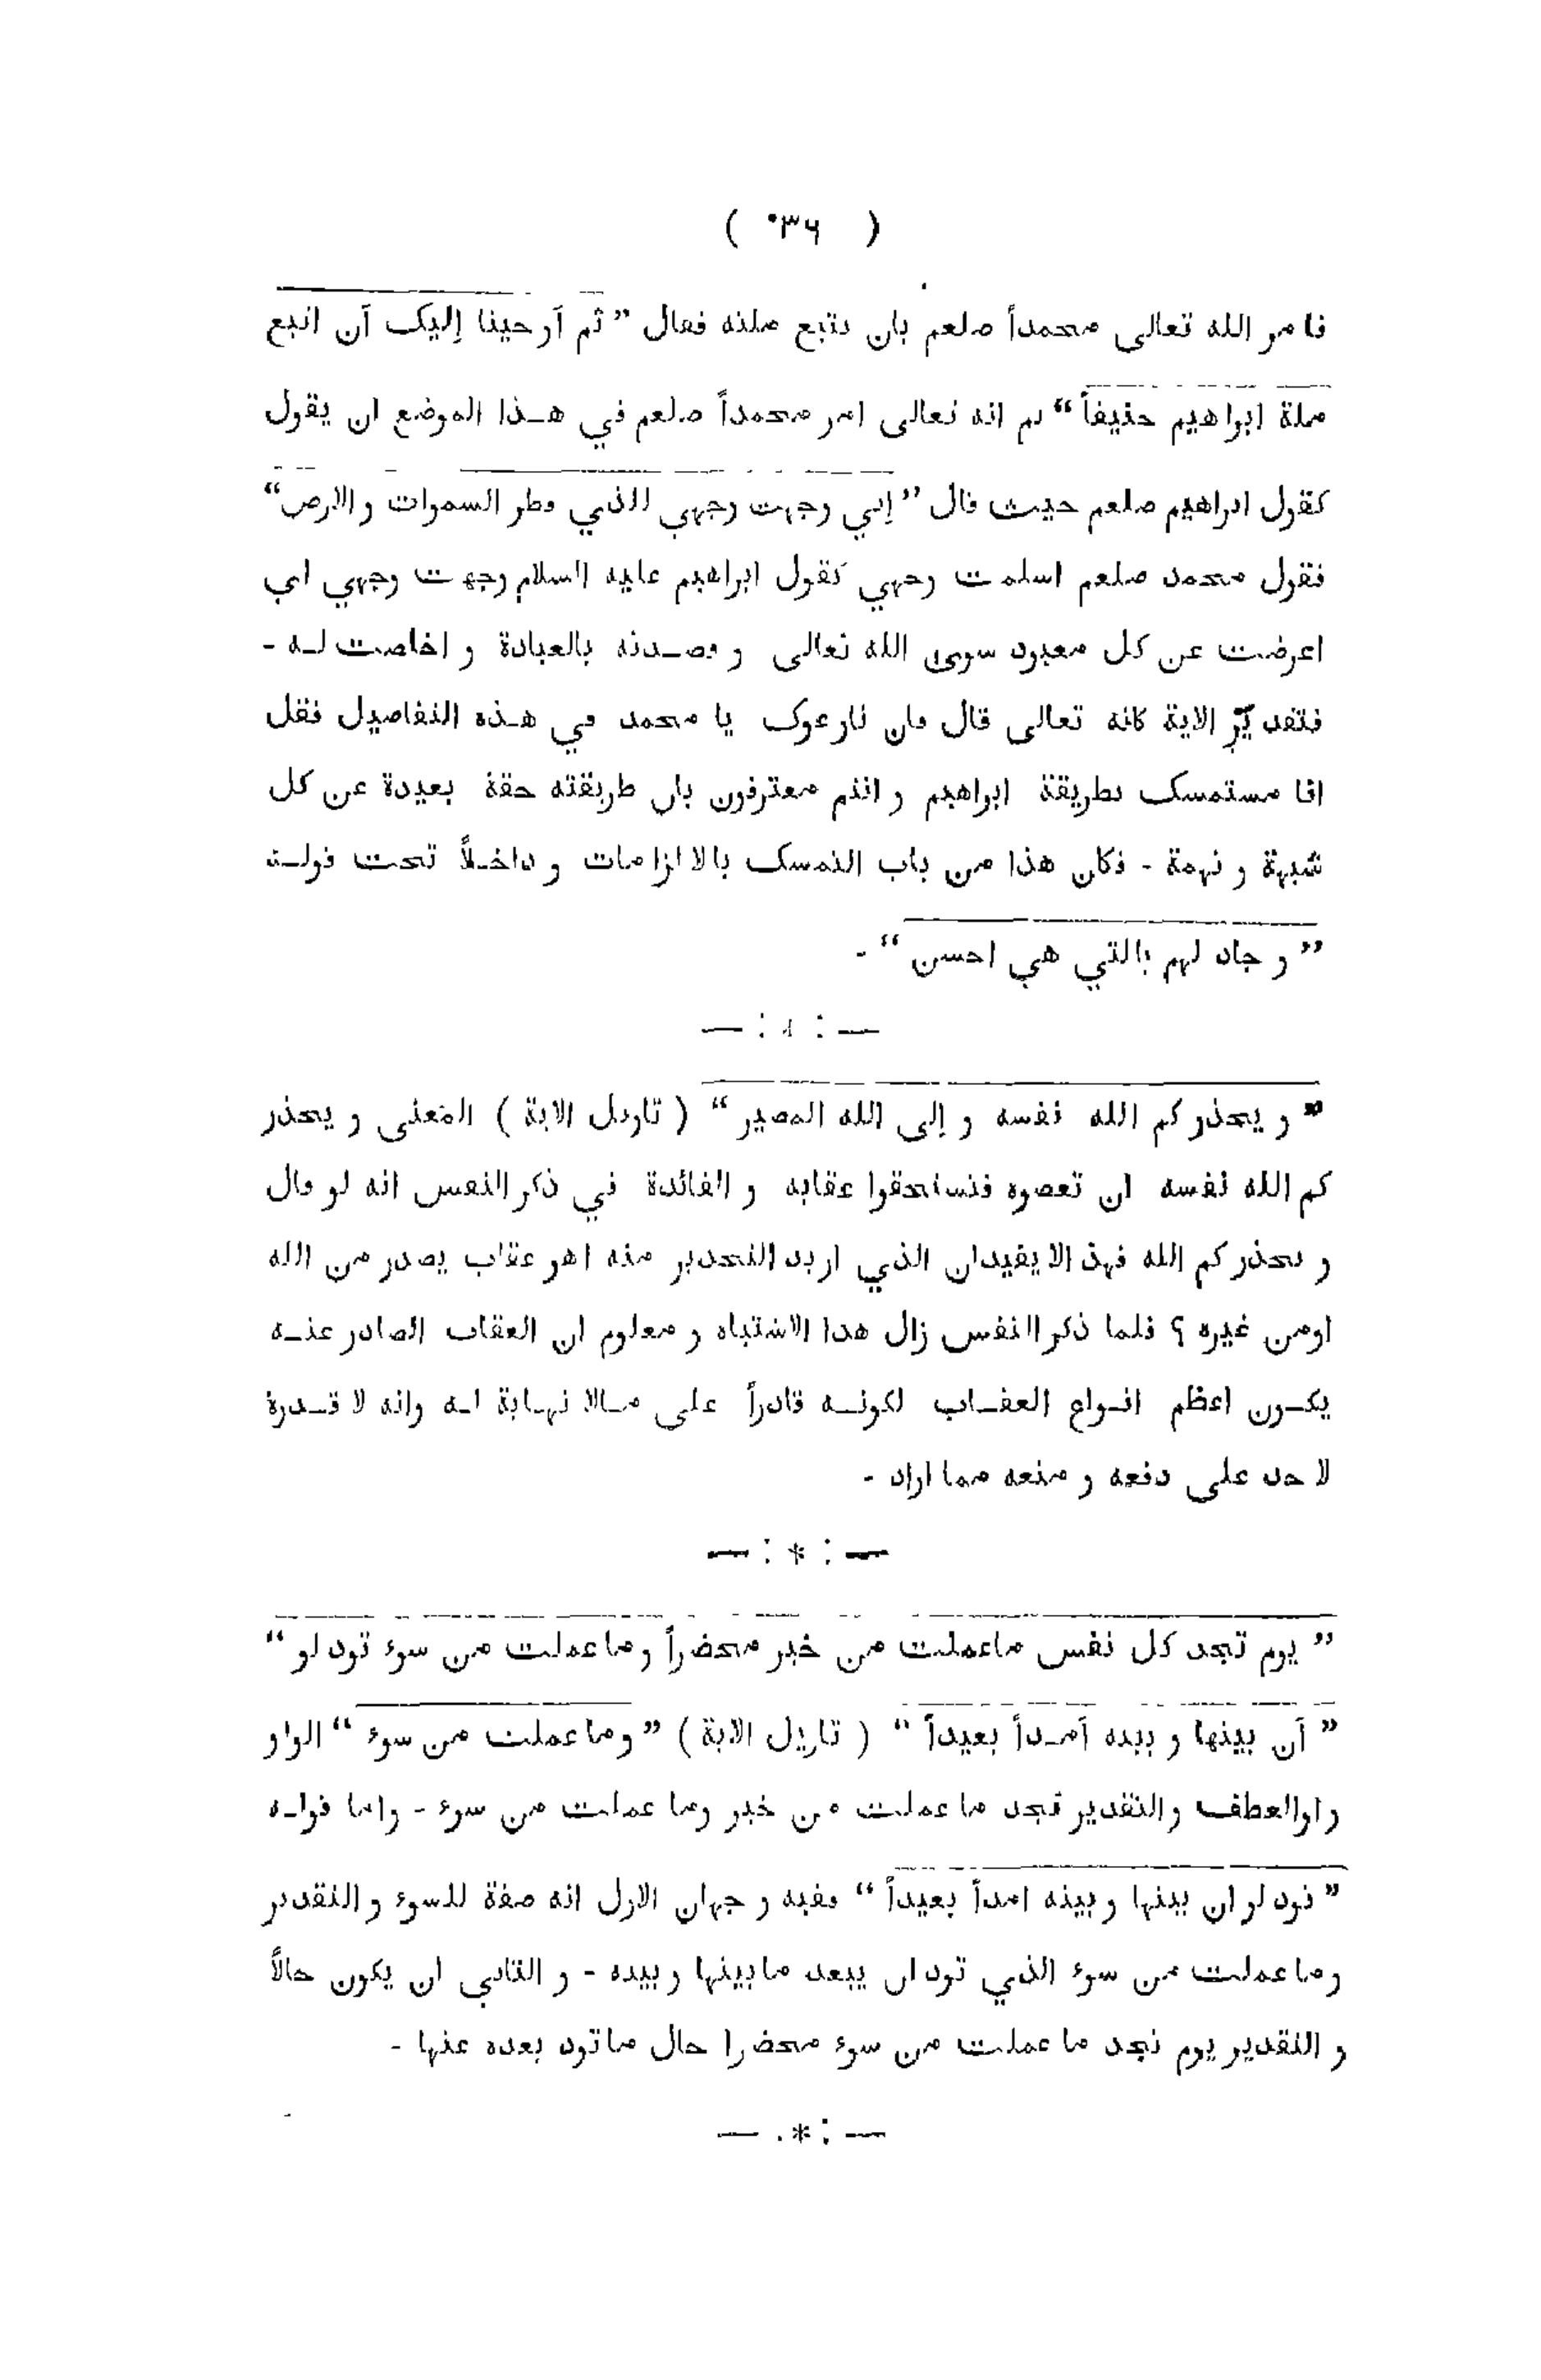 ( ٣٦ )
فامر الله تعالى محمداً صلعم بان يتبع ملته فقال ” ثم أوحينا إليك أن اتبع
ملة ابراهيم حنيفاً “ ثم انه تعالى امر محمداً صلعم في هـذا الموضع ان يقول
كقول ابراهيم صلعم حيث قال ” إني وجهت وجهي للذي فطر السموات والارض “
فقول محمد صلعم اسلمت وجهي كقول ابراهيم عليه السلام وجهت وجهي اي
اعرضت عن كل معبود سوى الله تعالى و قصـدته بالعبادة و اخلصت لـه -
فتقدير الاية كانه تعالى قال فان نازعوك يا محمد في هـذه التفاصيل فقل
انا مستمسك بطريقة ابراهيم و انتم معترفون بان طريقته حقة بعيدة عن كل
شبهة و تهمة - فكان هذا من باب التمسك بالالزامات و داخـلاً تحت قولـه
” و جاد لهم بالتي هي احسن “ -
— : * : —
” و يحذر كم الله نفسه و إلى الله المصير “ ( تاويل الاية ) المعنى و يحذر
كم الله نفسه ان تعصوه فتستحقوا عقابه و الفائدة في ذكر النفس انه لو قال
و يحذر كم الله فهذ الا يفيدان الذي اريد التحذير منه اهو عقاب يصدر من الله
اومن غيره ؟ فلما ذكر النفس زال هذا الاشتباه و معلوم ان العقاب الصادر عنـه
يكـون اعظم انـواع العقـاب لكونـه قادراً على مـالا نهـاية لـه وانه لا قـدرة
لا حد على دفعه و منعه مما اراد -
— : * : —
” يوم تجد كل نفس ماعملت من خير محضراً وما عملت من سوء تود لو “
” أن بينها و بينه أمـداً بعيداً “ ( تاويل الاية ) ” وما عملت من سوء “ الواو
واو العطف والتقدير تجد ما عملت من خير وما عملت من سوء - واما قولـه
” تود لو ان بينها و بينه امداً بعيداً “ ففيه و جهان الاول انه صفة للسوء و التقدير
وما عملت من سوء الذي تود ان يبعد ما بينها و بينه - و الثاني ان يكون حالاً
و التقدير يوم تجد ما عملت من سوء محضرا حال ماتود بعده عنها -
— : * . —